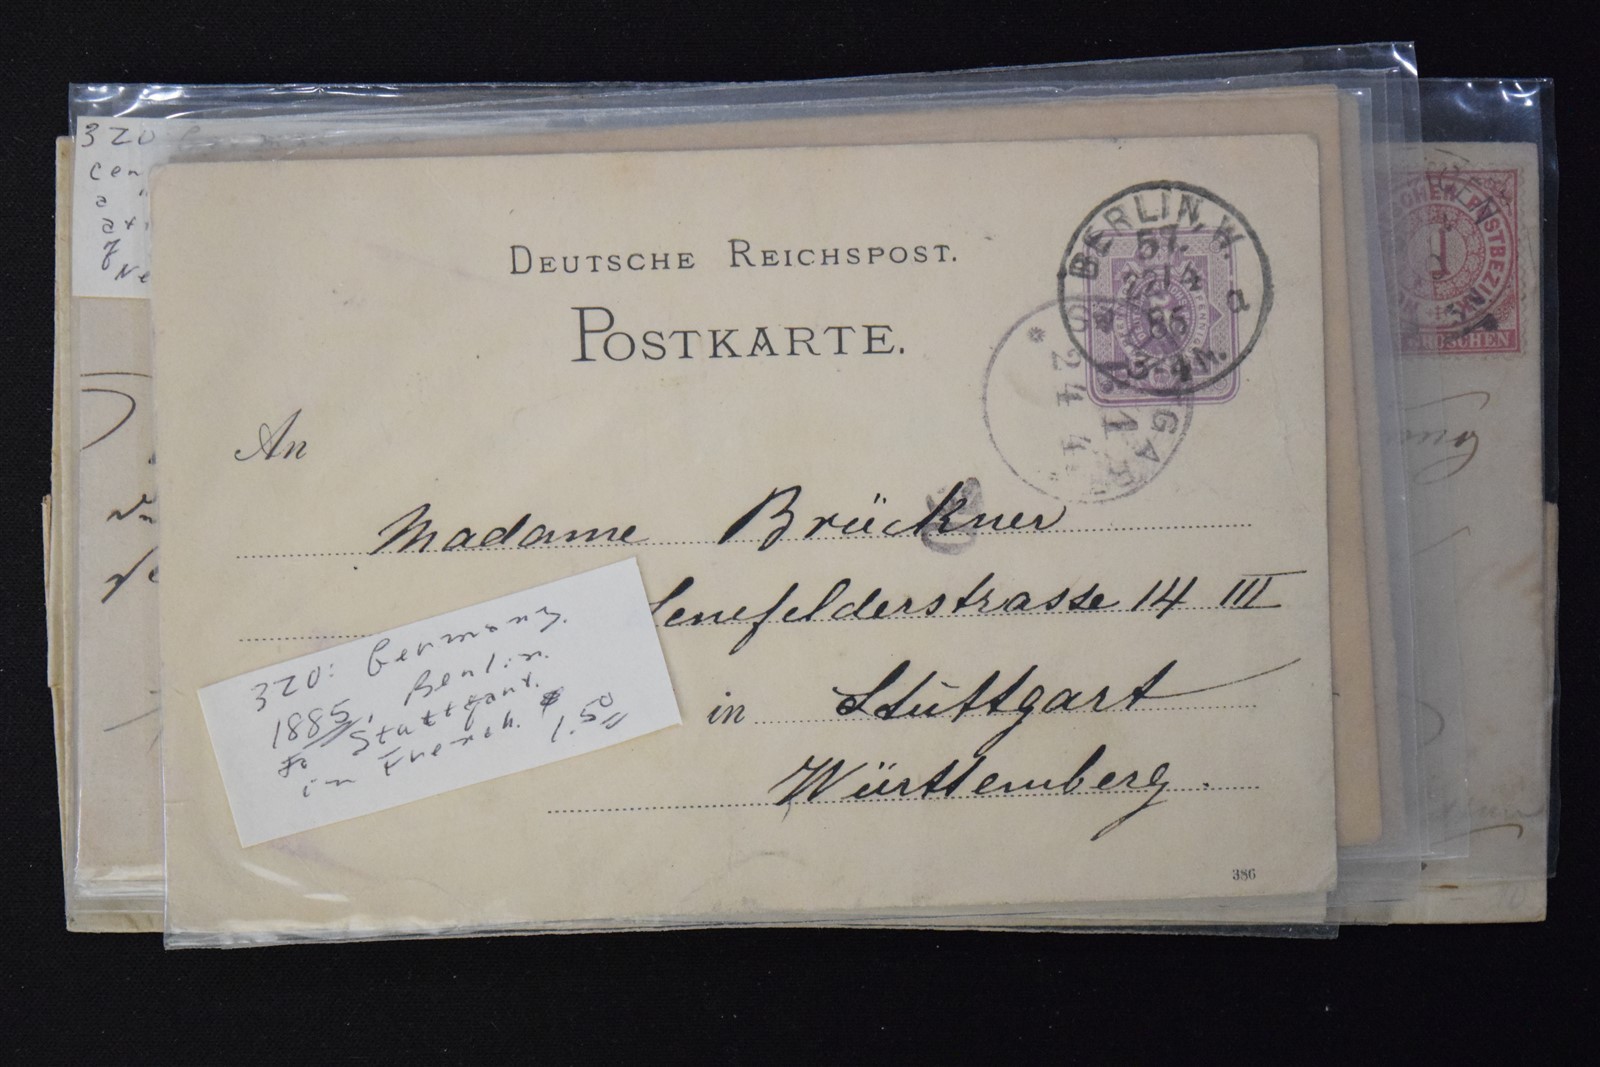 320
DEUTSCHE REICHSPOST.
POSTKARTE.
BERLIN, W.
57.
22/4
85
3-4N.
a
2 4 4
1
An
Madame Brückner
Senefelderstrasse 14 III
in Stuttgart
Württemberg.
386
320: Germany.
1885, Berlin.
to Stuttgart.
in French. 1.50
1
GROSCHEN